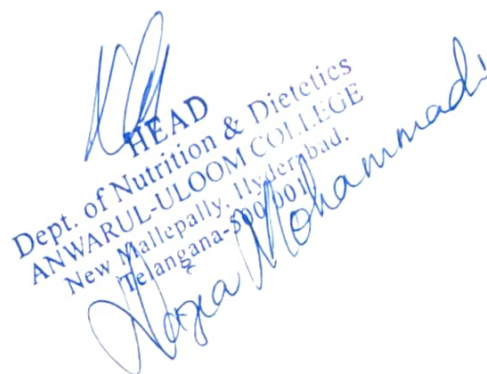 HEAD
Dept. of Nutrition & Dietetics
ANWARUL-ULOOM COLLEGE
New Mallepally, Hyderabad.
Telangana-500 001
Mohammadi